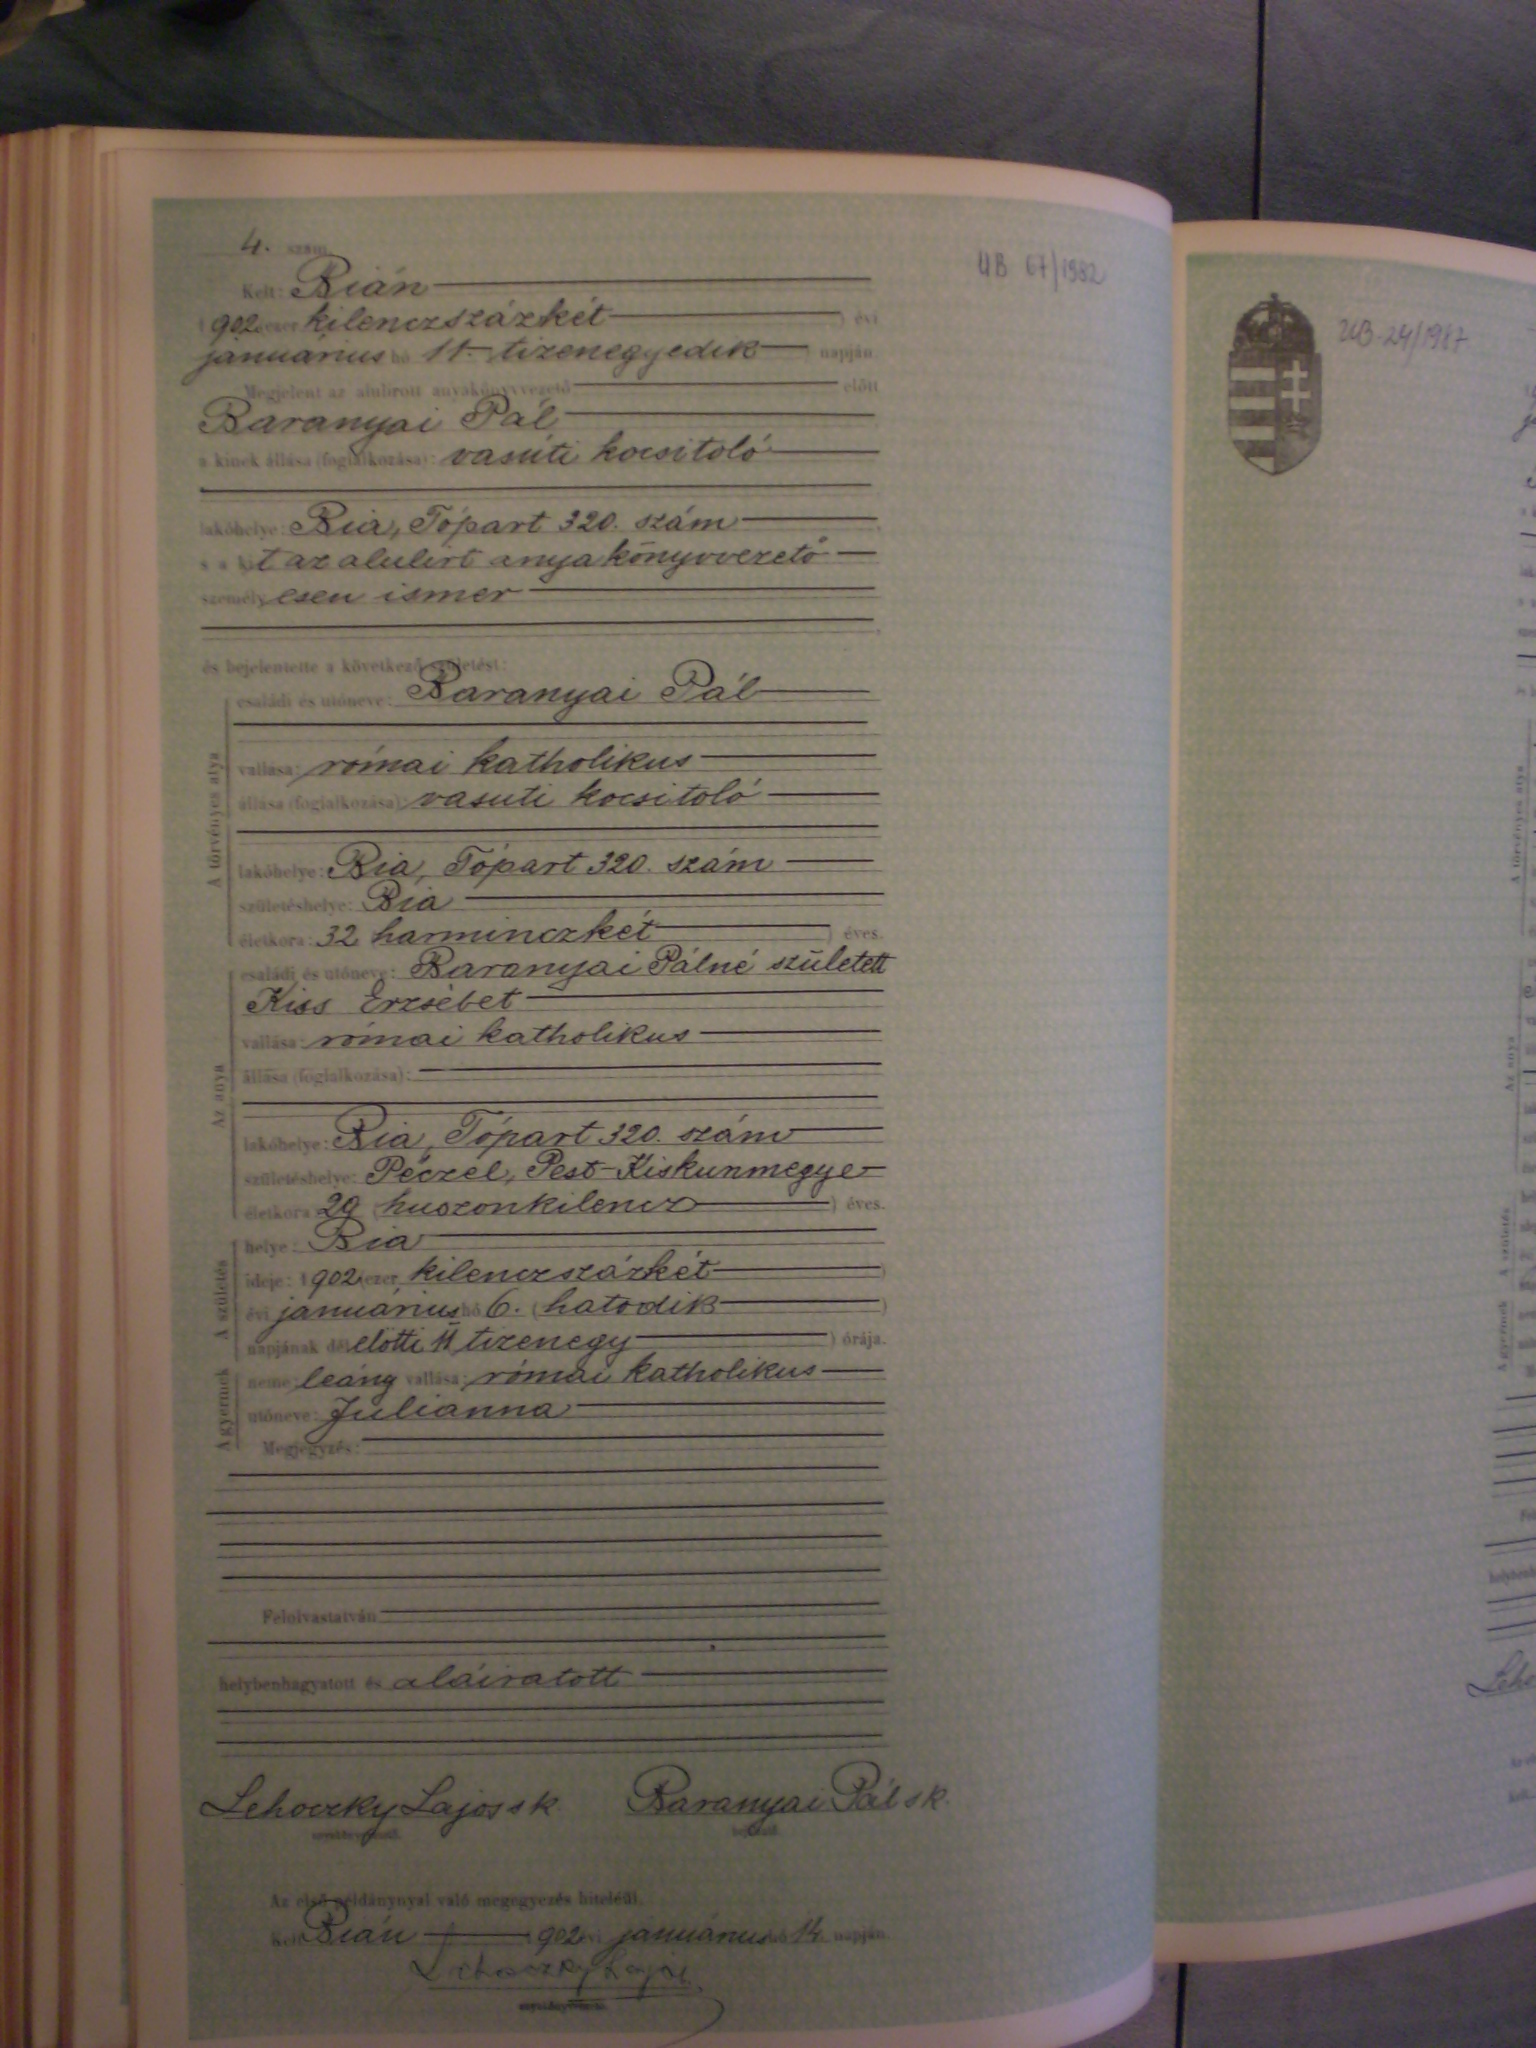 4. szám
UB 67/1982
Kelt: Bián
1902 ezer kilenczszázkét ) évi
január​ius hó 11. tizenegyedik ) napján.
Megjelent az alulírott anyakönyvvezető előtt
Baranyai Pál
a kinek állása (foglalkozása): vasúti kocsitoló
lakóhelye: Bia, Tópart 320. szám
s a kit az alulírt anyakönyvvezető
személyesen ismer
és bejelentette a következő születést:
A törvényes atya
családi és utóneve: Baranyai Pál
vallása: római katholikus
állása (foglalkozása): vasuti kocsitoló
lakóhelye: Bia, Tópart 320. szám
születéshelye: Bia
életkora: 32 harminczkét ) éves.
Az anya
családi és utóneve: Baranyai Pálné született
Kiss Erzsébet
vallása: római katholikus
állása (foglalkozása):
lakóhelye: Bia, Tópart 320. szám
születéshelye: Péczel, Pest-Kiskunmegye
életkora 29 huszonkilencz ) éves.
A születés
helye: Bia
ideje: 1902 ezer kilenczszázkét )
évi januárius hó 6. (hatodik )
napjának délelőtti 11 tizenegy ) órája.
A gyermek
neme: leány vallása: római katholikus
utóneve: Julianna
Megjegyzés:
Felolvastatván
helybenhagyatott és aláiratott
Lehoczky Lajos sk. Baranyai Pál sk.
Az első példánynyal való megegyezés hiteléül.
Kelt Bián 1902 évi januárius hó 14 napján.
Lehoczky Lajos
UB 24/1987
A törvényes atya
Az anya
A születés
A gyermek